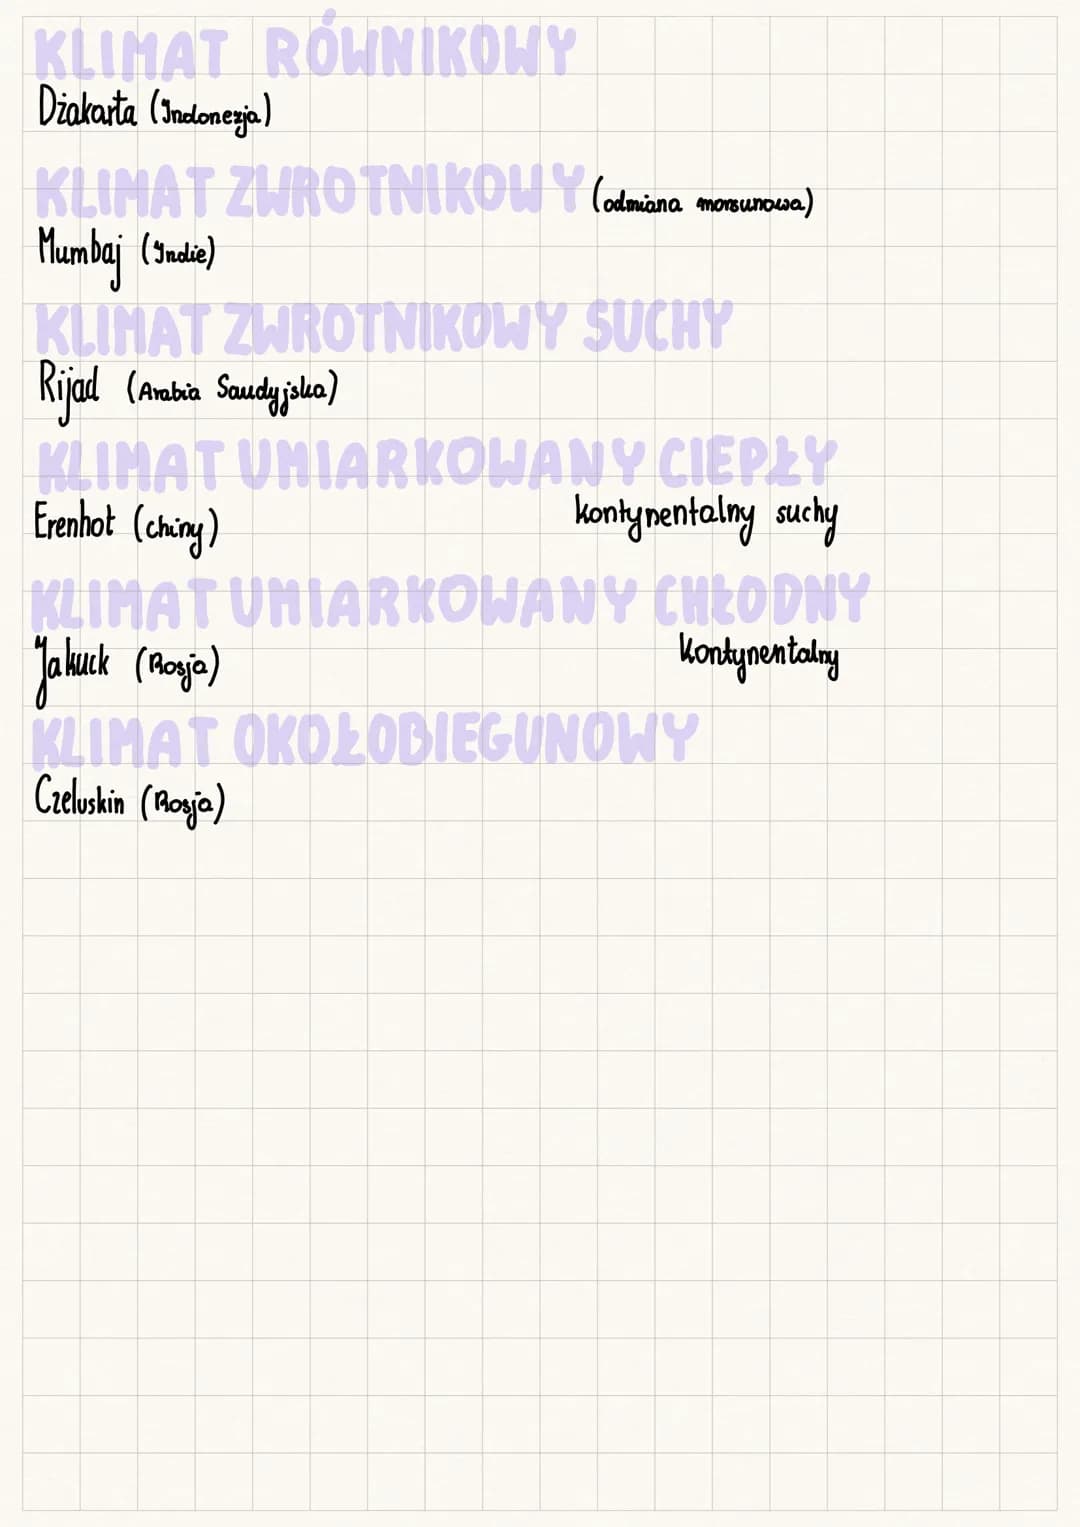 KLIMAT RÓWNIKOWY
Dżakarta (Indonezja)
KLIMAT ZWROTNIKOWY (odmiana monsunowa)
Mumbaj (Indie)
KLIMAT ZWROTNIKOWY SUCHY
Rijad (Arabia Saudyjska)
KLIMAT UMIARKOWANY CIEPŁY
Erenhot (chiny) kontynentalny suchy
KLIMAT UMIARKOWANY CHŁODNY
Jakuck (Rosja) kontynentalny
KLIMAT OKOŁOBIEGUNOWY
Czeluskin (Rosja)